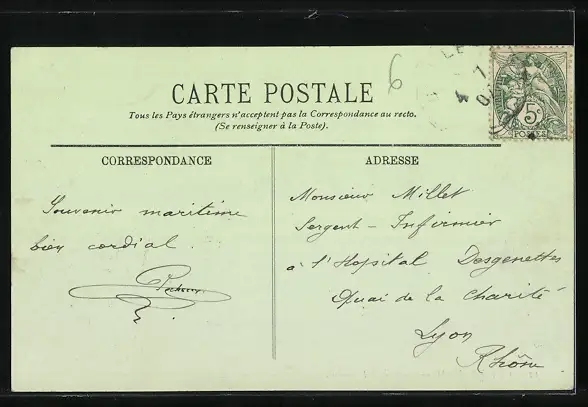 6
CARTE POSTALE
Tous les Pays étrangers n'acceptent pas la Correspondance au recto.
(Se renseigner à la Poste).
CORRESPONDANCE
ADRESSE
Souvenir maritime
bien cordial.
Monsieur Millet
Sergent - Infirmier
à l'Hopital Desgenettes
Quai de la Charité
Lyon
Rhône
5c
POSTES